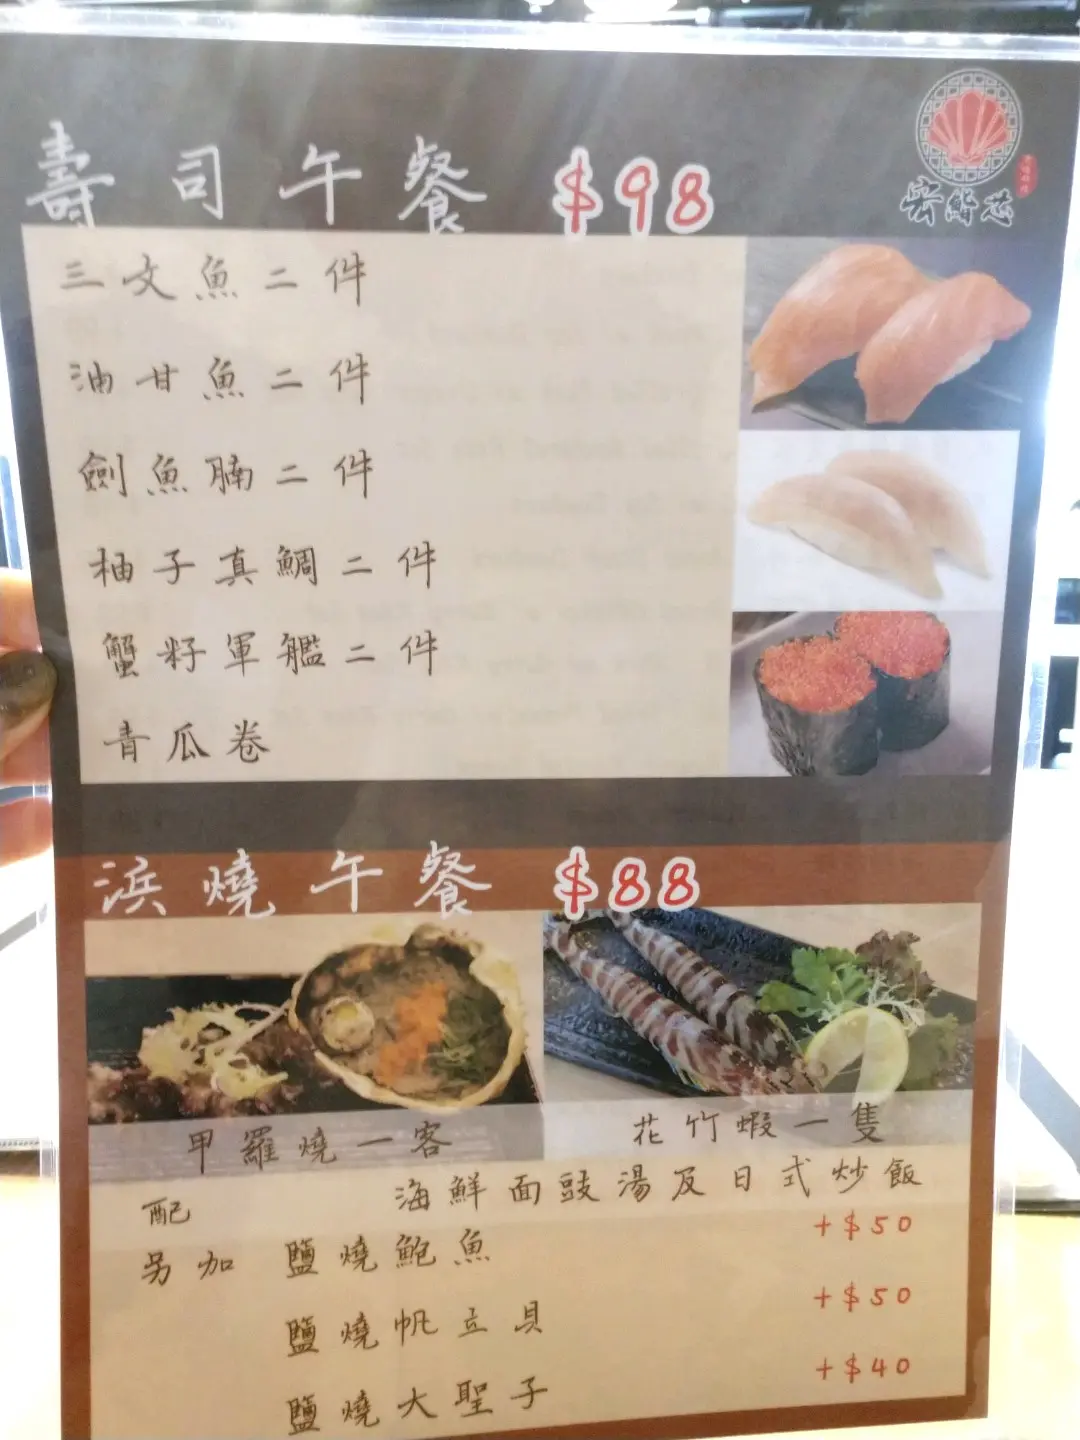 壽司午餐 $98
三文魚二件
油甘魚二件
劍魚腩二件
柚子真鯛二件
蟹籽軍艦二件
青瓜卷
浜燒午餐 $88
甲羅燒一客
花竹蝦一隻
配 海鮮面豉湯及日式炒飯
另加 鹽燒鮑魚 +$50
鹽燒帆立貝 +$50
鹽燒大聖子 +$40